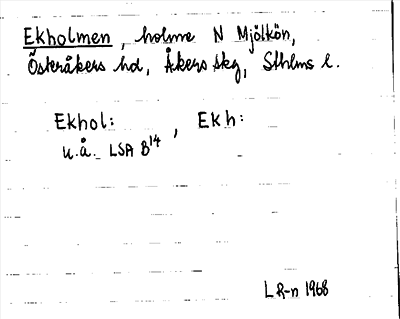 Ekholmen, holme N Mjölkön,
Österåkers hd, Åkers skg, Sthlms l.
Ekhol: , Ekh:
u.å. LSA B14
LR-n 1968